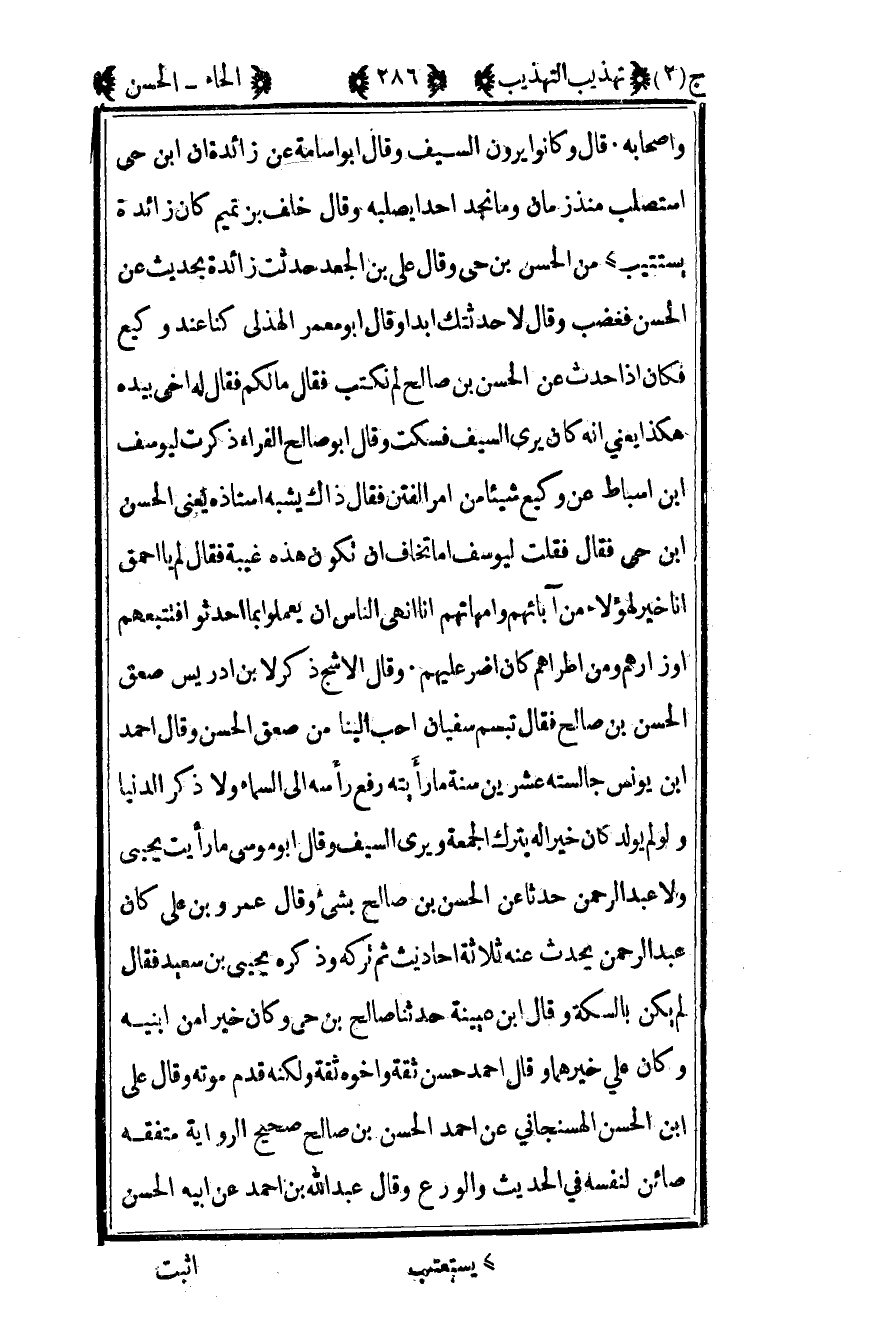 ج (٢) تهذيب التهذيب ٢٨٦ الحاء - الحسن
واصحابه ٠ قال وكانوا يرون السيف وقال ابو اسامة عن زائدة ان ابن حى
استصلب منذ زمان وما نجد احدا يصلبه وقال خلف بن تميم كان زائدة
يستتيب > من الحسن بن حى وقال على بن الجعد حدثت زائدة بحديث عن
الحسن فغضب وقال لا حدثتك ابدا وقال ابو معمر الهذلى كنا عند وكيع
فكان اذا حدث عن الحسن بن صالح لم نكتب فقال مالكم فقال له اخى بيده
هكذا يعني انه كان يرى السيف فسكت وقال ابو صالح الفراء ذكرت ليوسف
ابن اسباط عن وكيع شيئا من امر الفتن فقال ذاك يشبه استاذه يعنى الحسن
ابن حى فقال فقلت ليوسف اما تخاف ان تكون هذه غيبة فقال لم يا احمق
انا خير لهؤلاء من آبائهم وامهاتهم انا انهى الناس ان يعملوا بما احدثوا فتتبعهم
اوزارهم ومن اطراهم كان اضر عليهم ٠ وقال الاشج ذكر لابن ادريس صعق
الحسن بن صالح فقال تبسم سفيان احب الينا من صعق الحسن وقال احمد
ابن يونس جالسته عشرين سنة ما رأيته رفع رأسه الى السماء ولا ذكر الدنيا
ولو لم يولد كان خيرا له يترك الجمعة ويرى السيف وقال ابو موسى ما رأيت يحيى
ولا عبدالرحمن حدثا عن الحسن بن صالح بشئ وقال عمرو بن على كان
عبدالرحمن يحدث عنه ثلاثة احاديث ثم تركه وذكره يحيى بن سعيد فقال
لم يكن بالسكة وقال ابن عيينة حدثنا صالح بن حى وكان خيرا من ابنيه
وكان علي خيرهما وقال احمد حسن ثقة واخوه ثقة ولكنه قدم موته وقال على
ابن الحسن الهسنجاني عن احمد الحسن بن صالح صحيح الرواية متفقه
صائن لنفسه في الحديث والورع وقال عبدالله بن احمد عن ابيه الحسن
> يستعتب اثبت